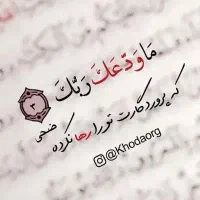 مَا وَدَّعَكَ رَبُّكَ
۳
ضحی
که پروردگارت تو را رها نکرده
@Khodaorg